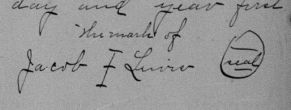 day and year first
"the mark of
Jacob I (seal)